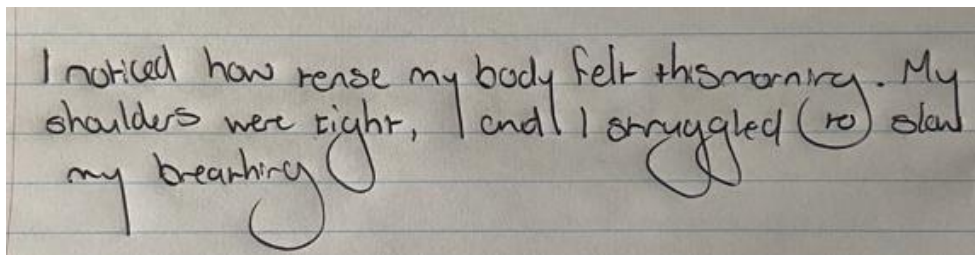 I noticed how tense my body felt this morning. My
shoulders were tight, and I struggled (to) slow
my breathing